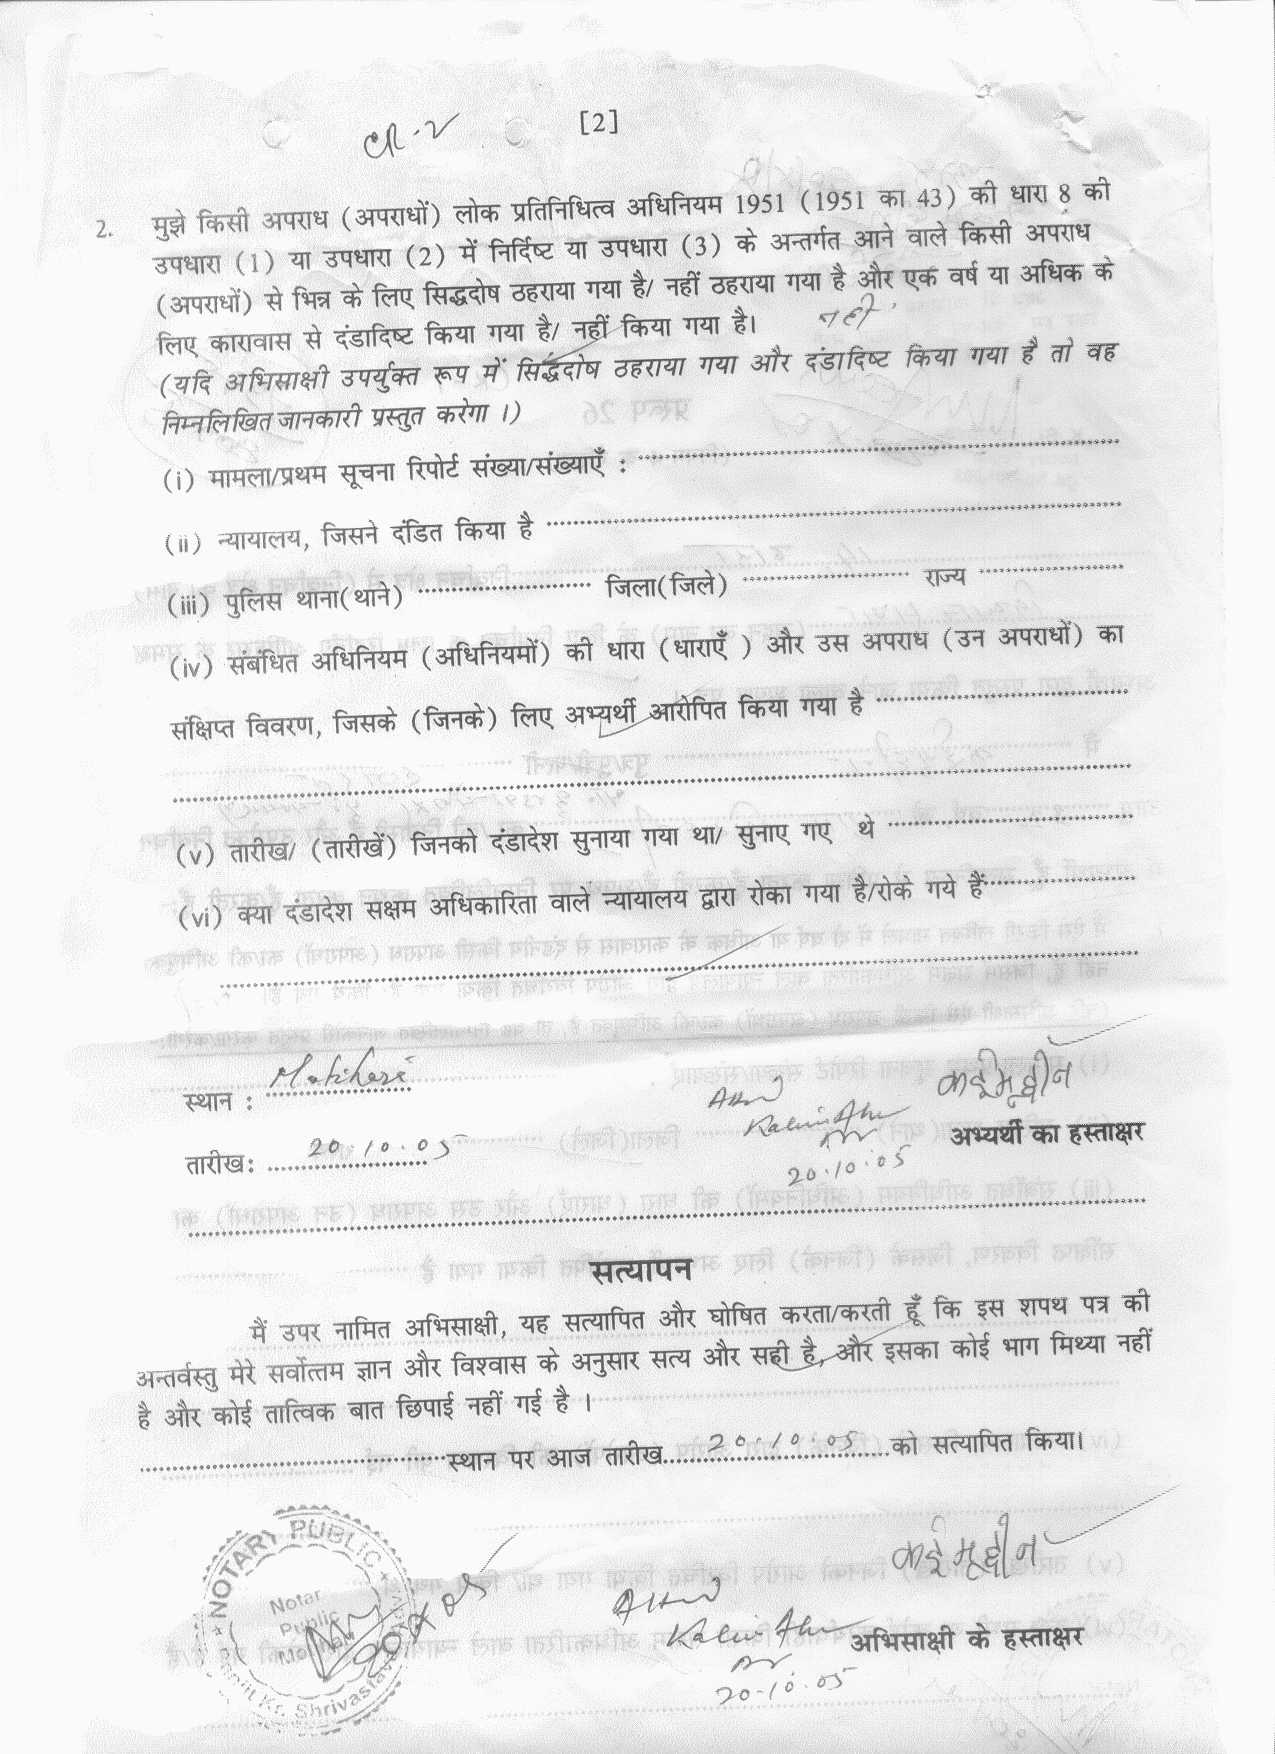 CR-2
[2]
2. मुझे किसी अपराध (अपराधों) लोक प्रतिनिधित्व अधिनियम 1951 (1951 का 43) की धारा 8 की
उपधारा (1) या उपधारा (2) में निर्दिष्ट या उपधारा (3) के अन्तर्गत आने वाले किसी अपराध
(अपराधों) से भिन्न के लिए सिद्धदोष ठहराया गया है/ नहीं ठहराया गया है और एक वर्ष या अधिक के
लिए कारावास से दंडादिष्ट किया गया है/ नहीं किया गया है। नहीं
(यदि अभिसाक्षी उपर्युक्त रूप में सिद्धदोष ठहराया गया और दंडादिष्ट किया गया है तो वह
निम्नलिखित जानकारी प्रस्तुत करेगा ।)
(i) मामला/प्रथम सूचना रिपोर्ट संख्या/संख्याएँ :
(ii) न्यायालय, जिसने दंडित किया है
(iii) पुलिस थाना(थाने) जिला(जिले) राज्य
(iv) संबंधित अधिनियम (अधिनियमों) की धारा (धाराएँ ) और उस अपराध (उन अपराधों) का
संक्षिप्त विवरण, जिसके (जिनके) लिए अभ्यर्थी आरोपित किया गया है
(v) तारीख/ (तारीखें) जिनको दंडादेश सुनाया गया था/ सुनाए गए थे
(vi) क्या दंडादेश सक्षम अधिकारिता वाले न्यायालय द्वारा रोका गया है/रोके गये हैं
स्थान : Motihari
कईमूद्दीन
अभ्यर्थी का हस्ताक्षर
तारीख: 20.10.05
20.10.05
सत्यापन
मैं उपर नामित अभिसाक्षी, यह सत्यापित और घोषित करता/करती हूँ कि इस शपथ पत्र की
अन्तर्वस्तु मेरे सर्वोत्तम ज्ञान और विश्वास के अनुसार सत्य और सही है, और इसका कोई भाग मिथ्या नहीं
है और कोई तात्विक बात छिपाई नहीं गई है ।
स्थान पर आज तारीख 20.10.05 को सत्यापित किया।
NOTARY PUBLIC
Notar
Public
Kr. Shrivastava
कईमूद्दीन
अभिसाक्षी के हस्ताक्षर
20.10.05